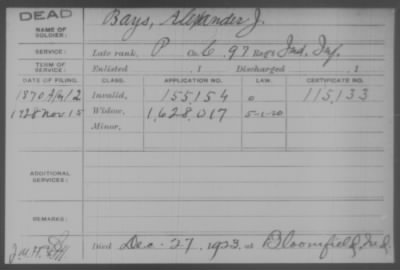 DEAD
NAME OF SOLDIER: Bays, Alexander J.
SERVICE: Late rank, P Co. C. 97 Reg't Ind. Inf.
TERM OF SERVICE: Enlisted , 1 Discharged , 1
DATE OF FILING. CLASS. APPLICATION NO. LAW. CERTIFICATE NO.
1870 Apl 12 Invalid, 155,154 115,133
1928 Nov 15 Widow, 1,628,017 5-1-20
Minor,
ADDITIONAL SERVICES:
REMARKS:
Died Dec. 27, 1923, at Bloomfield, Ind.